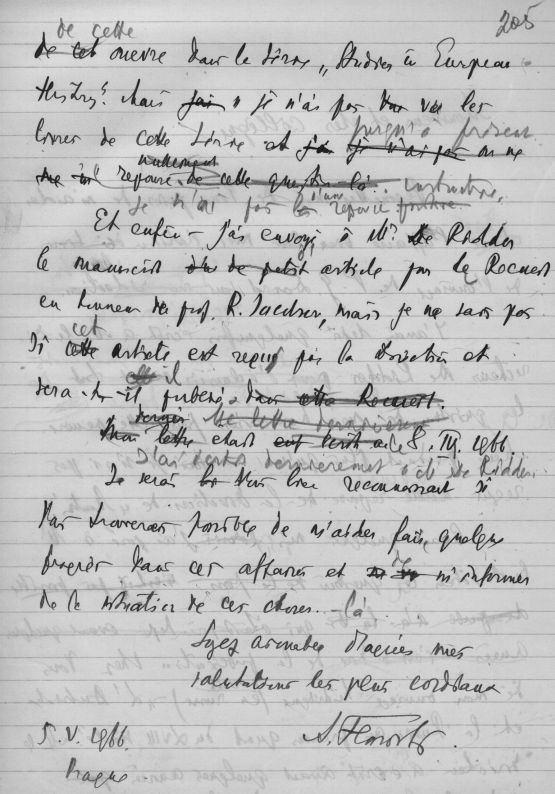 205
de cette
de cet oeuvre dans le série „Studies in European
History". Mais j'ai je n'ai pas vu les
livres de cette série et jusqu'à présent
je n'ai pas
nullement
reponse de cette question-là. instructive.
Je n'ai pas d'une reponse
Et enfin – j'ai envoyé à Mr de Ridder
le manuscrit d'un de petit article pour le Recueil
en honneur de prof. R. Jacobson, mais je ne sais pas
si cet article est reçu par la Direction et
sera-t-il publié dans Recueil.
dernier
Mon lettre était écrit 8. III. 1966.
J'ai écrit dernièrement à M. de Ridder.
Je serai bien reconnaissant si
Vous trouverez possible de m'aider faire quelque
progrès dans ces affaires et m'informer
de la situation de ces choses-là.
Soyez aimable d'agréer mes
salutations les plus cordiaux
5. V. 1966.
Prague.